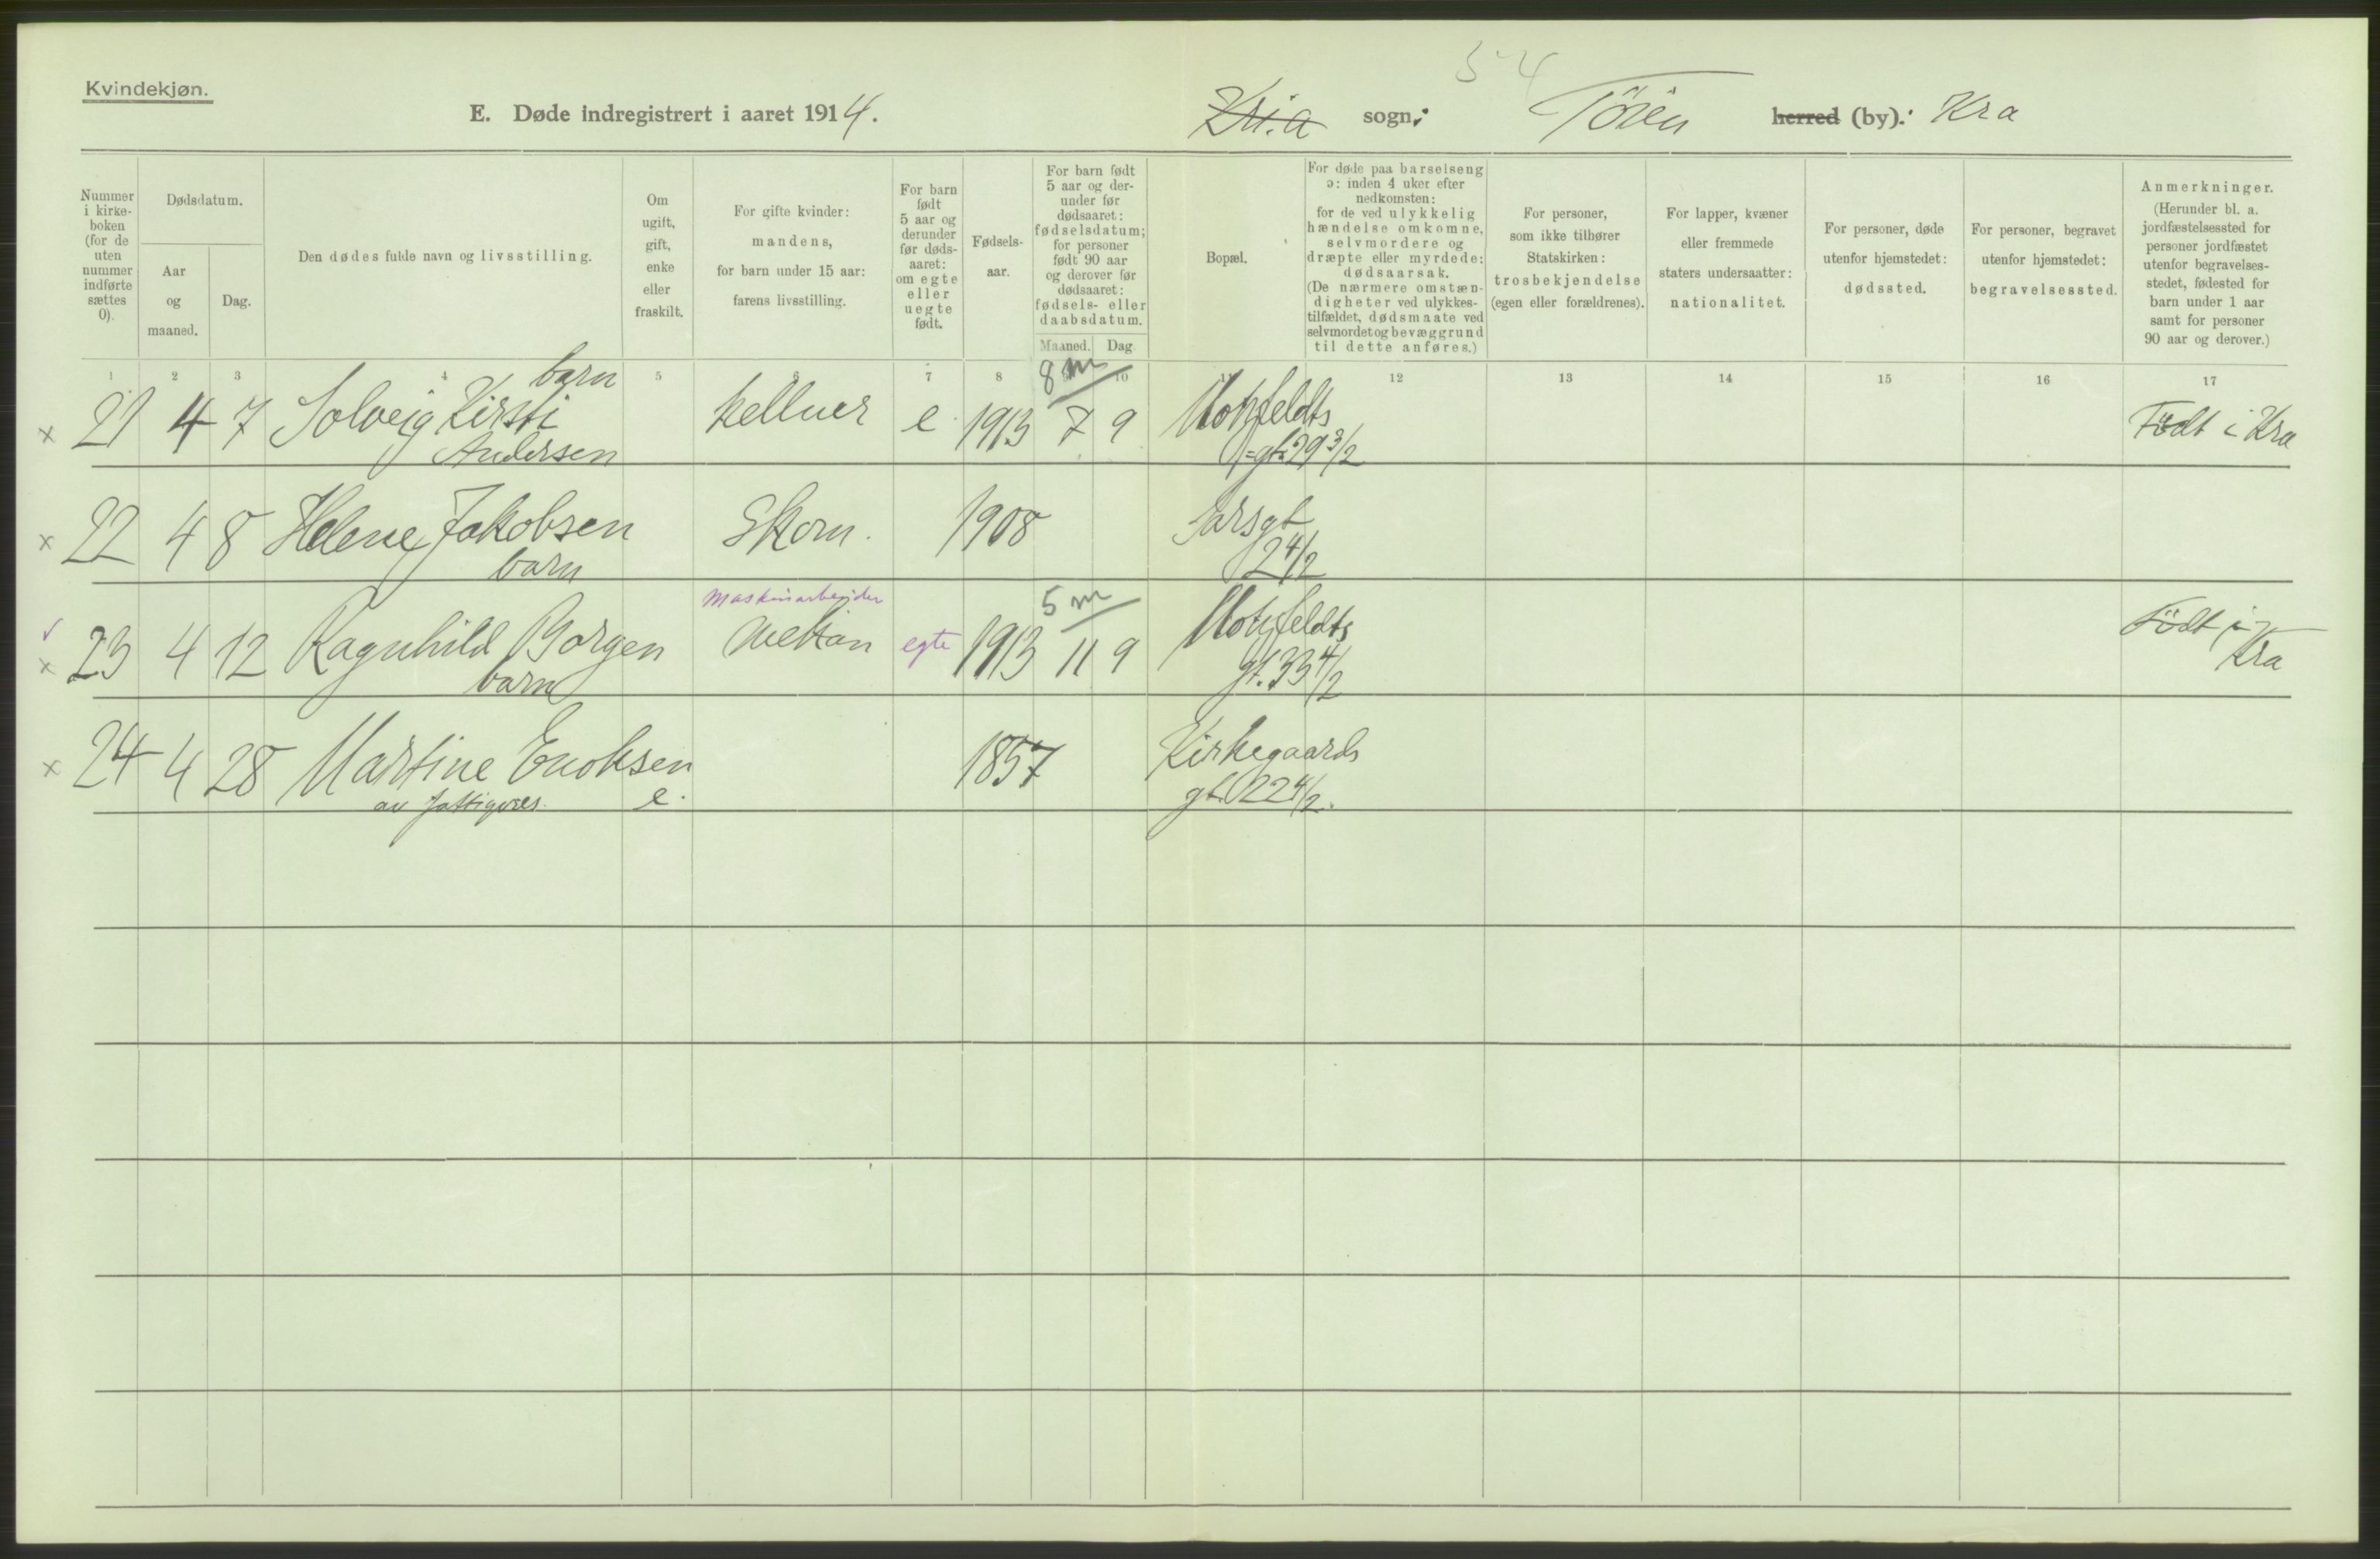 54
Kvindekjøn.
E. Døde indregistrert i aaret 1914.
Kri.a sogn: Töien herred (by): Kra
Nummer i kirke-boken (for de uten nummer indførte sættes 0).
Dødsdatum.
Aar og maaned.
Dag.
Den dødes fulde navn og livsstilling.
Om ugift, gift, enke eller fraskilt.
For gifte kvinder: mandens, for barn under 15 aar: farens livsstilling.
For barn født 5 aar og derunder før døds-aaret: om egte eller uegte født.
Fødsels-aar.
For barn født 5 aar og der-under før dødsaaret: fødselsdatum; for personer født 90 aar og derover før dødsaaret: fødsels- eller daabsdatum.
Maaned. Dag
Bopæl.
For døde paa barselseng ɔ: inden 4 uker efter nedkomsten: for de ved ulykkelig hændelse omkomne, selvmordere og dræpte eller myrdede: dødsaarsak. (De nærmere omstæn-digheter ved ulykkes-tilfældet, dødsmaate ved selvmordet og bevæggrund til dette anføres.)
For personer, som ikke tilhører Statskirken: trosbekjendelse (egen eller forældrenes).
For lapper, kvæner eller fremmede staters undersaatter: nationalitet.
For personer, døde utenfor hjemstedet: dødssted.
For personer, begravet utenfor hjemstedet: begravelsessted.
Anmerkninger. (Herunder bl. a. jordfæstelsessted for personer jordfæstet utenfor begravelses-stedet, fødested for barn under 1 aar samt for personer 90 aar og derover.)
1 2 3 4 5 6 7 8 9 10 11 12 13 14 15 16 17
barn 8 m
x 21 4 7 Solveig Kirsti kellner e. 1913 7 9 Motzfeldts Født i Kra
Andersen =gt. 29 3/2
x 22 4 8 Helene Jakobsen Skom. 1908 Sarsgt
barn 2 4/2
Maskinarbeider 5 m
x 23 4 12 Ragnhild Borgen Mekan egte 1913 11 9 Motzfeldts Født i
barn gt. 33 4/2 Kra
x 24 4 28 Martine Enoksen 1857 Kirkegaards
av fattigvæs. e. gt. 22 4/2.